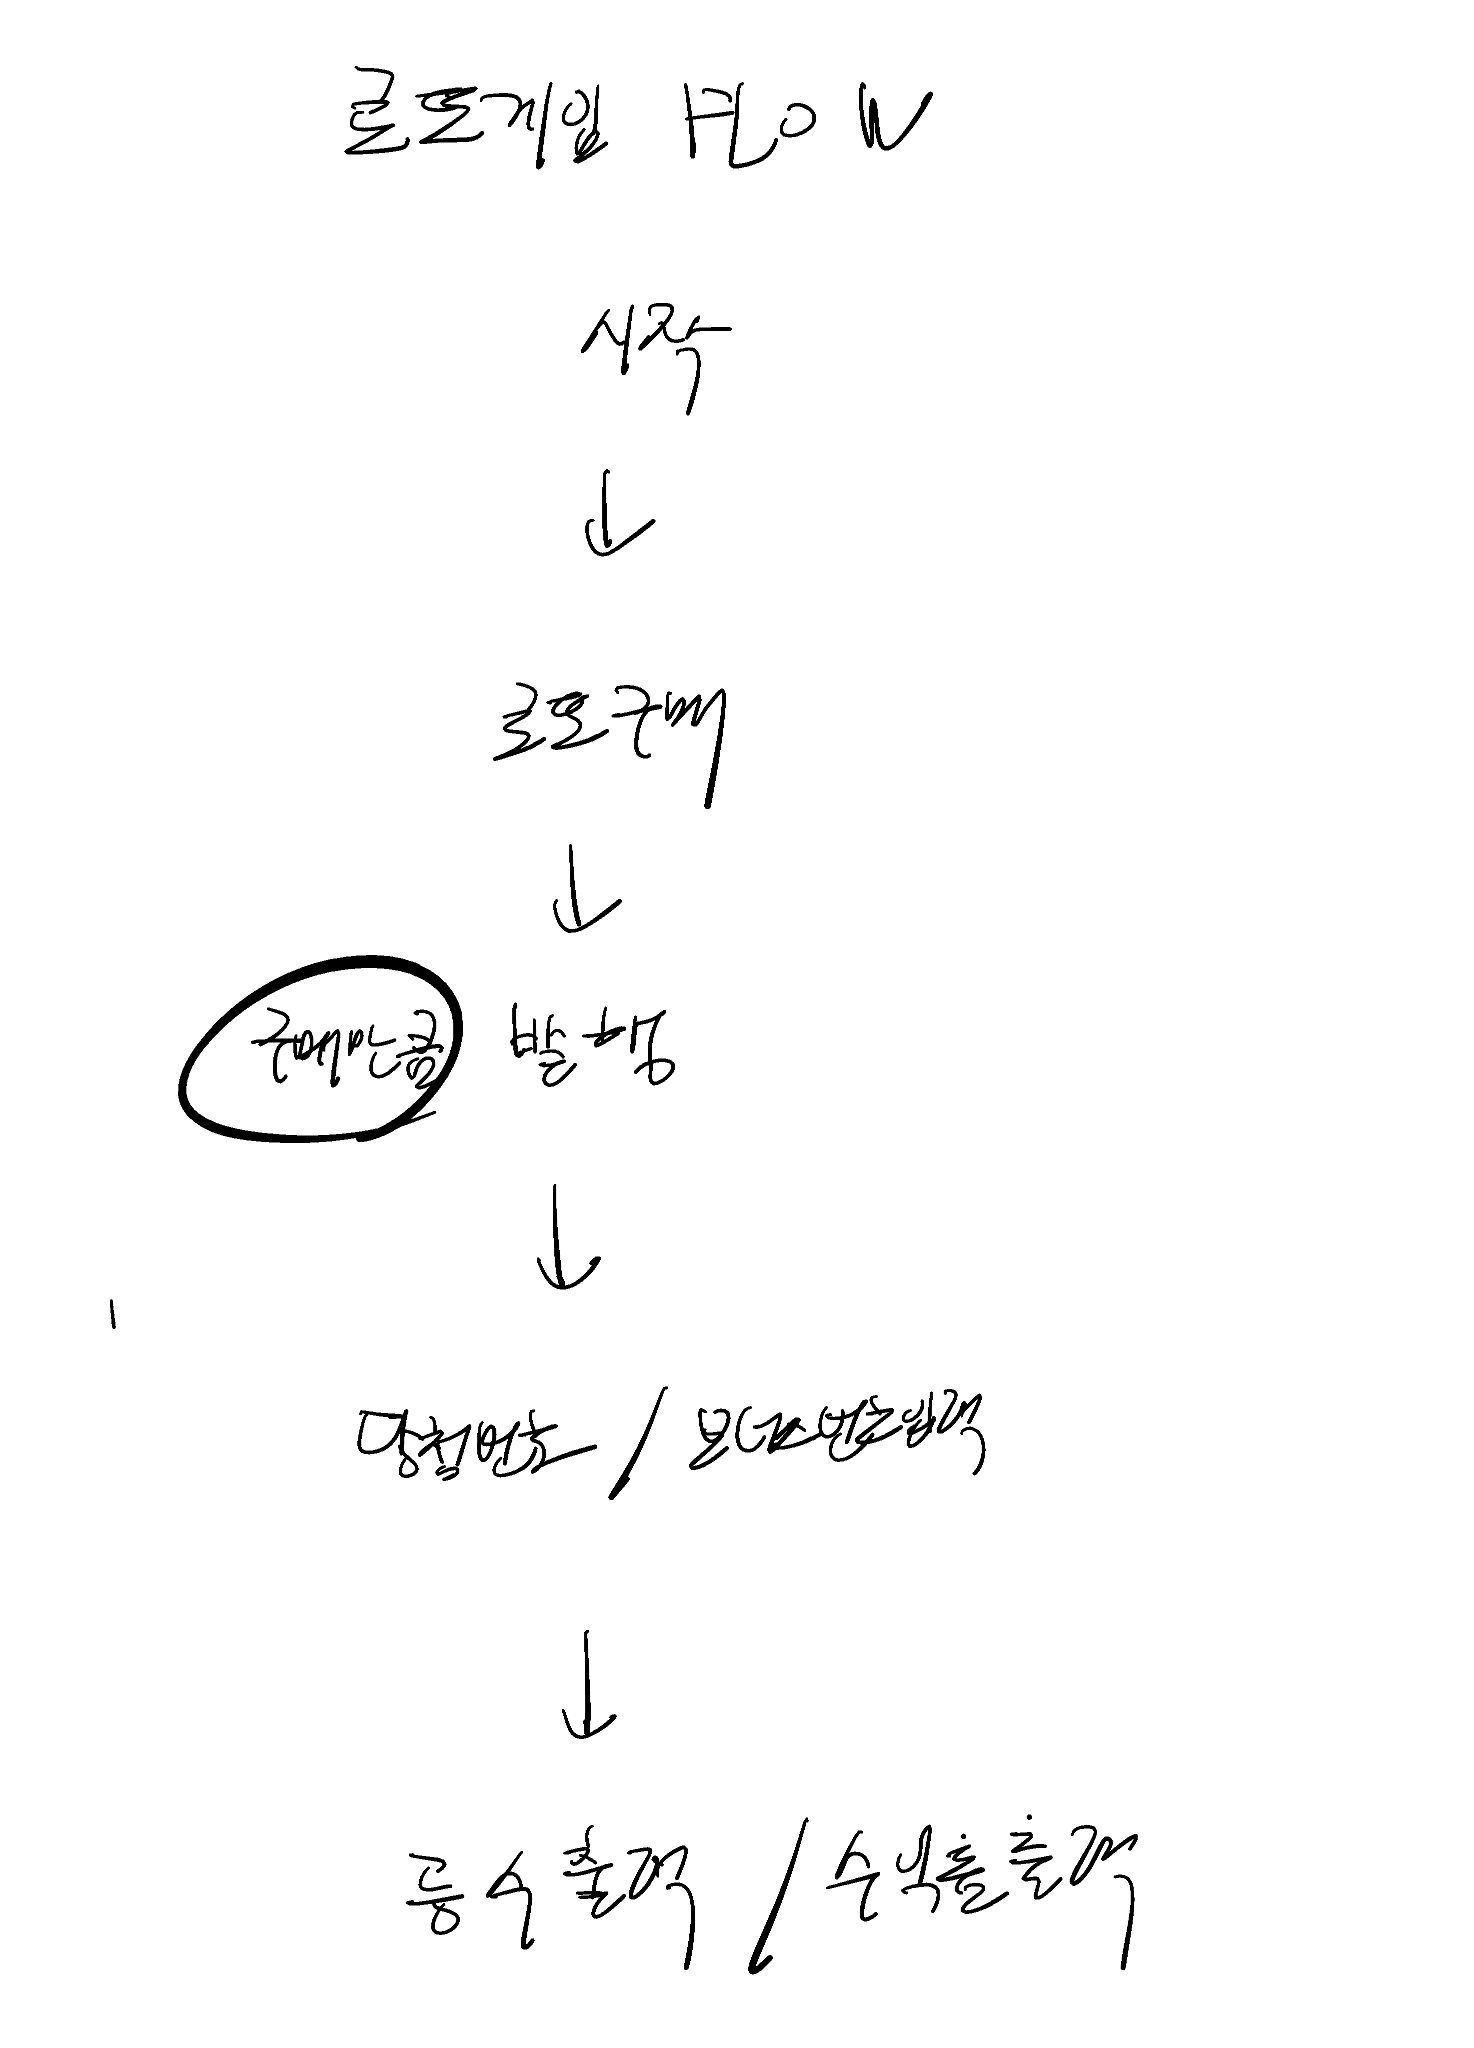 로또게임 FLOW
시작
↓
로또구매
↓
구매만큼 발행
↓
당첨번호 / 보너스번호입력
↓
등수출력 / 수익률출력